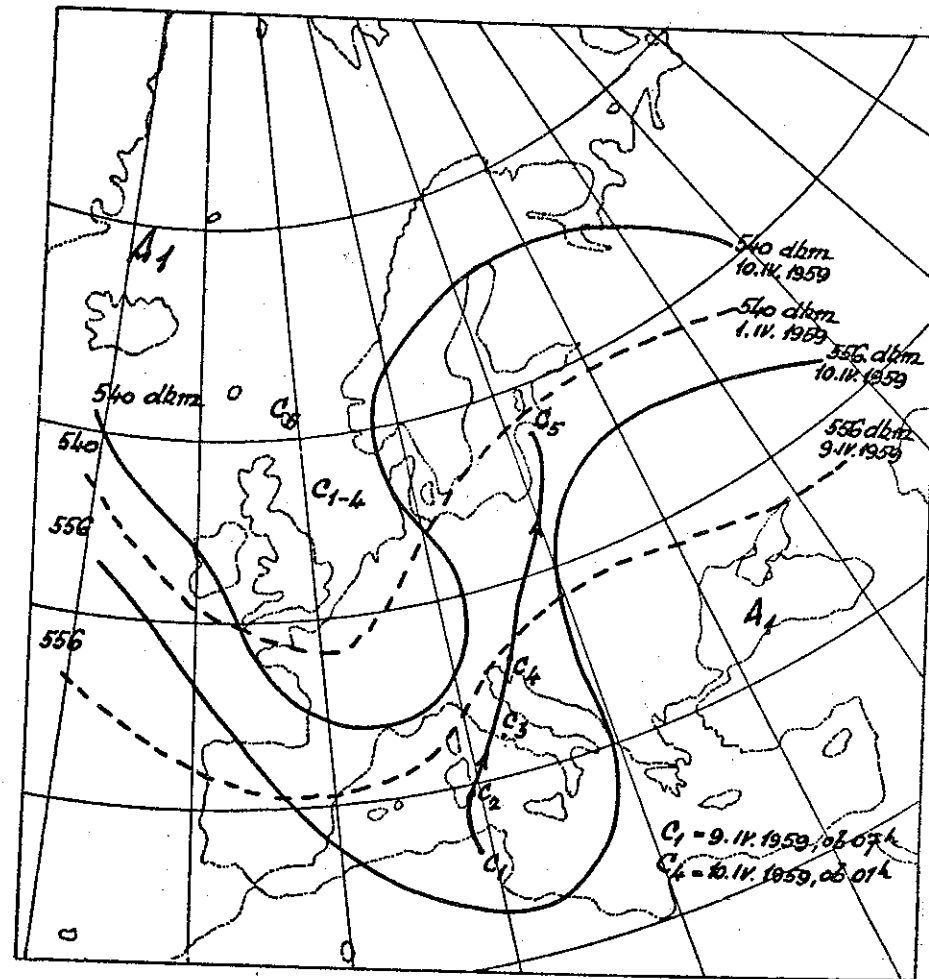 A1
540 dbm
10.IV.1959
540 dbm
1.IV.1959
556 dbm
10.IV.1959
556 dbm
9.IV.1959
540 dbm
C6
C5
540
C1-4
556
556
A1
C4
C3
C2
C1
C1 = 9.IV.1959, ob 07h
C4 = 10.IV.1959, ob 01h